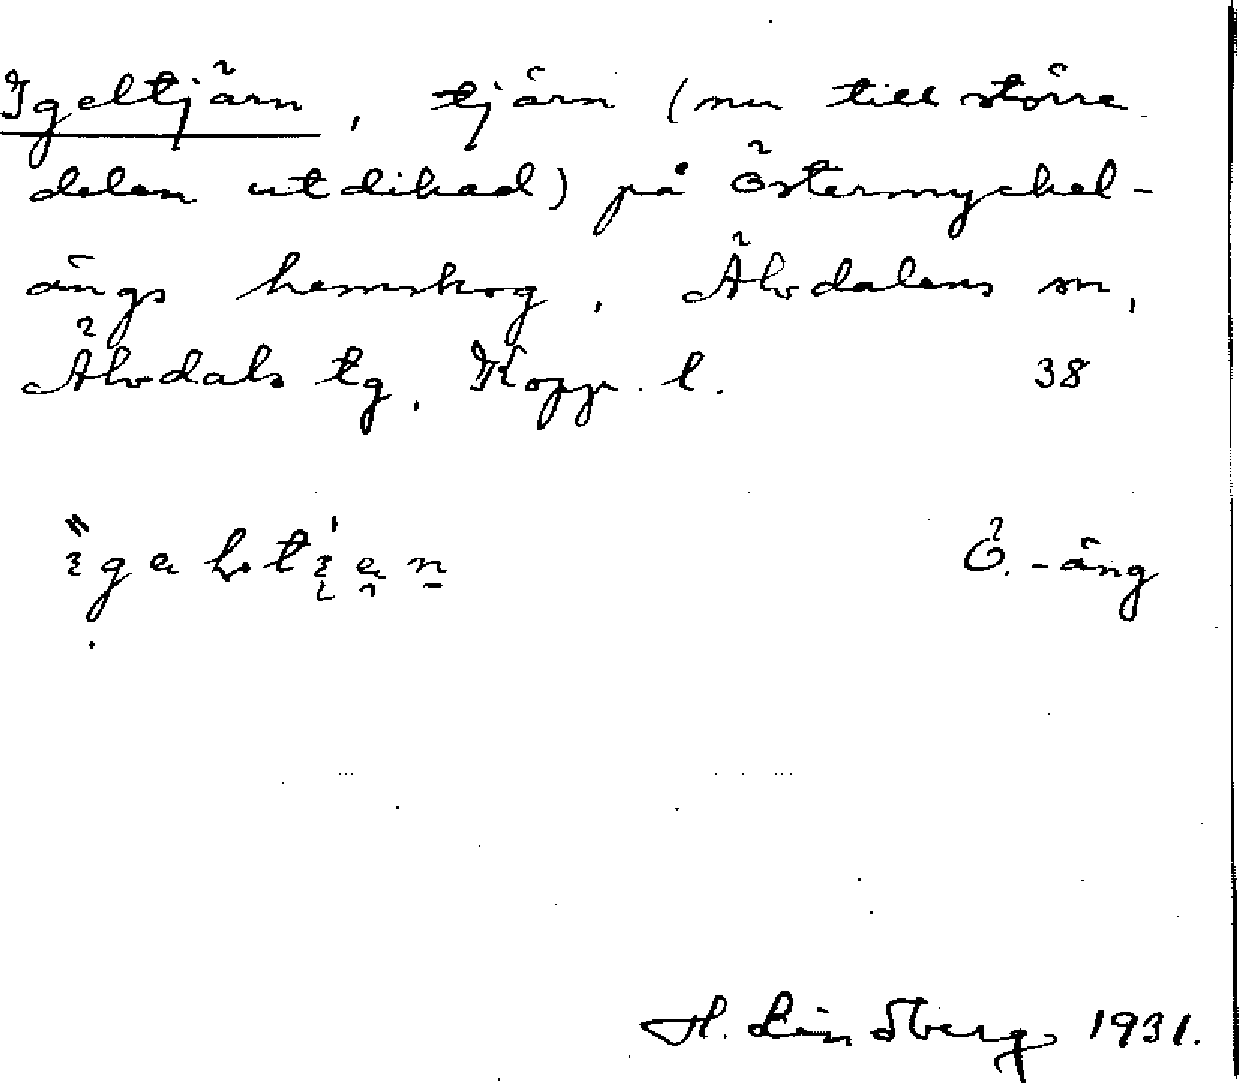 Igeltjärn, tjärn (nu till större
delen utdikad) på Östermyckel-
ängs hemskog, Älvdalens sn,
Älvdals tg, Kopp. l. 38
Ö.-äng
H. Lindberg 1931.